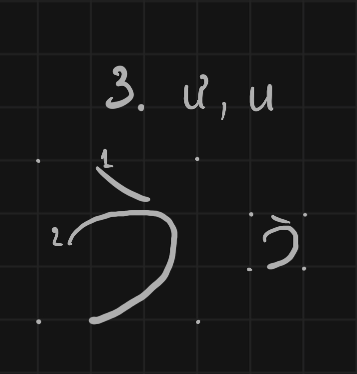 3. ư, u
1
2 う う